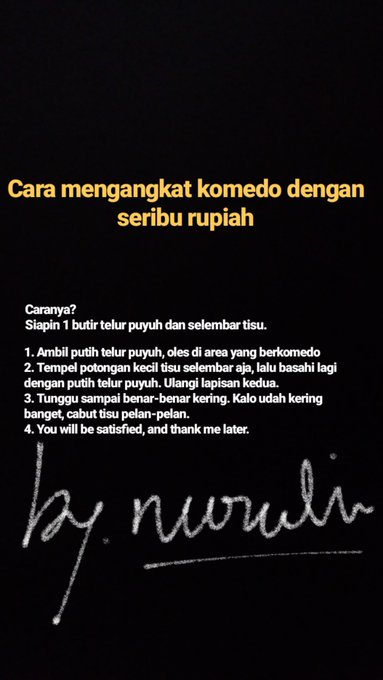 Cara mengangkat komedo dengan
seribu rupiah
Caranya?
Siapin 1 butir telur puyuh dan selembar tisu.
1. Ambil putih telur puyuh, oles di area yang berkomedo
2. Tempel potongan kecil tisu selembar aja, lalu basahi lagi
dengan putih telur puyuh. Ulangi lapisan kedua.
3. Tunggu sampai benar-benar kering. Kalo udah kering
banget, cabut tisu pelan-pelan.
4. You will be satisfied, and thank me later.
by. nurulin